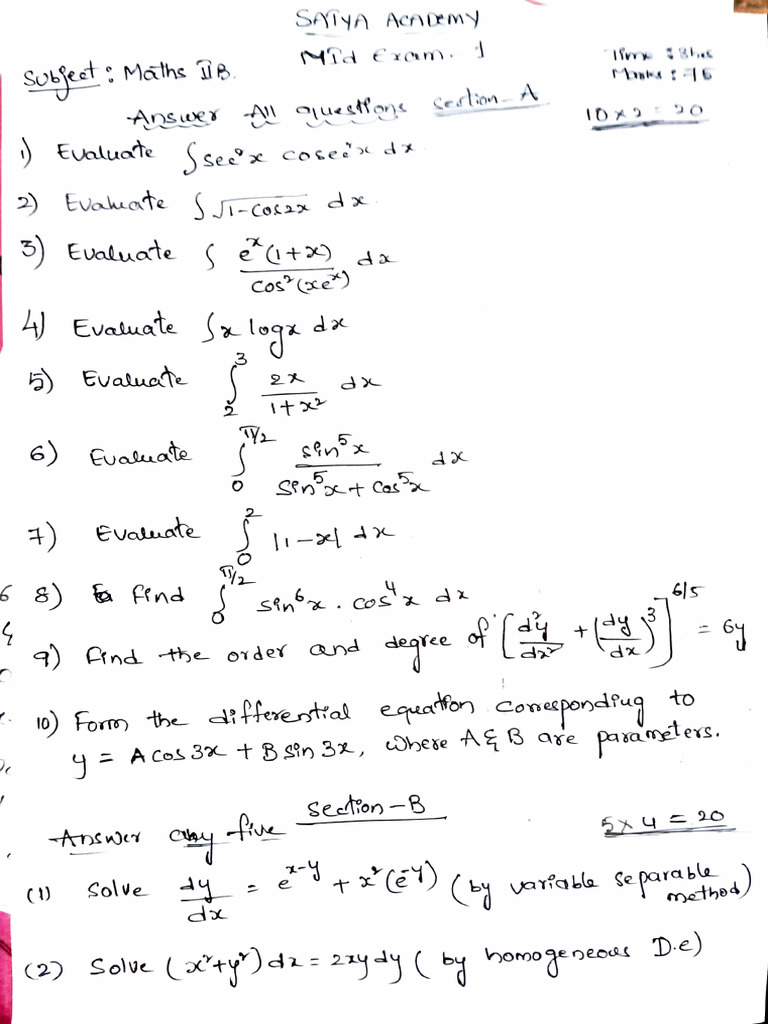 SATYA ACADEMY
Mid Exam. 1
Subject: Maths IIB.
Time : 3hrs
Marks : 75
Answer All questions Section-A
10 x 2 = 20
1) Evaluate ∫sec²x cosec²x dx
2) Evaluate ∫√1-cos2x dx
3) Evaluate ∫ eˣ(1+x)/cos²(xeˣ) dx
4) Evaluate ∫x logx dx
5) Evaluate ∫₂³ 2x/1+x² dx
6) Evaluate ∫₀^π/2 sin⁵x/sin⁵x+cos⁵x dx
7) Evaluate ∫₀² |1-x| dx
8) find ∫₀^π/2 sin⁶x . cos⁴x dx
9) find the order and degree of [d²y/dx² + (dy/dx)³]^6/5 = 6y
10) Form the differential equation corresponding to
y = A cos 3x + B sin 3x, where A & B are parameters.
Section-B
Answer any five
5 x 4 = 20
(1) Solve dy/dx = e^x-y + x²(e^-y) (by variable separable method)
(2) Solve (x²+y²)dx = 2xy dy ( by homogeneous D.e)